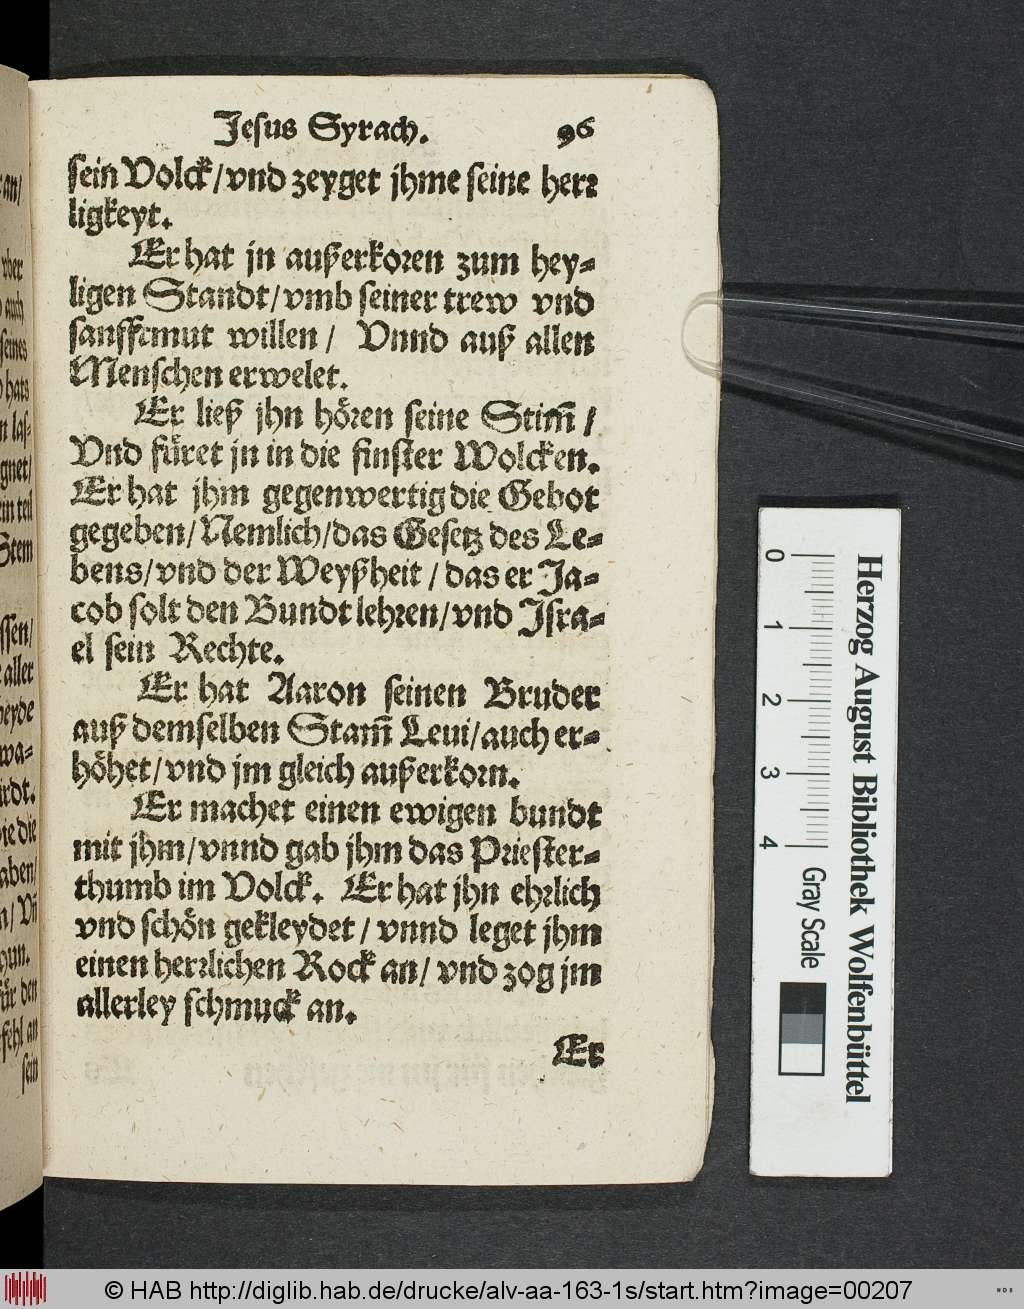 Jesus Syrach. 96
sein Volck/vnd zeyget jhme seine herꝛ
ligkeyt.
Er hat jn außerkoren zum hey-
ligen Standt/vmb seiner trew vnd
sanfftmut willen/ Vnnd auß allen
Menschen erwelet.
Er ließ jhn hören seine Stim̃/
Vnd füret jn in die finster Wolcken.
Er hat jhm gegenwertig die Gebot
gegeben/Nemlich/das Gesetz des Le-
bens/vnd der Weyßheit/das er Ja-
cob solt den Bundt lehren/vnd Isra-
el sein Rechte.
Er hat Aaron seinen Bruder
auß demselben Stam̃ Leui/auch er-
höhet/vnd jm gleich außerkorn.
Er machet einen ewigen bundt
mit jhm/vnnd gab jhm das Priester-
thumb im Volck. Er hat jhn ehrlich
vnd schön gekleydet/vnnd leget jhm
einen herꝛlichen Rock an/vnd zog jm
allerley schmuck an.
Er
an/
vber
auch
seines
hats
n las-
gnet/
em teil
Stem
ssen/
aller
beyde
wa-
irdt.
die
aben/
n/ Vñ
hun.
für den
fehl an
sein
0 1 2 3 4
Gray Scale
Herzog August Bibliothek Wolfenbüttel
© HAB http://diglib.hab.de/drucke/alv-aa-163-1s/start.htm?image=00207